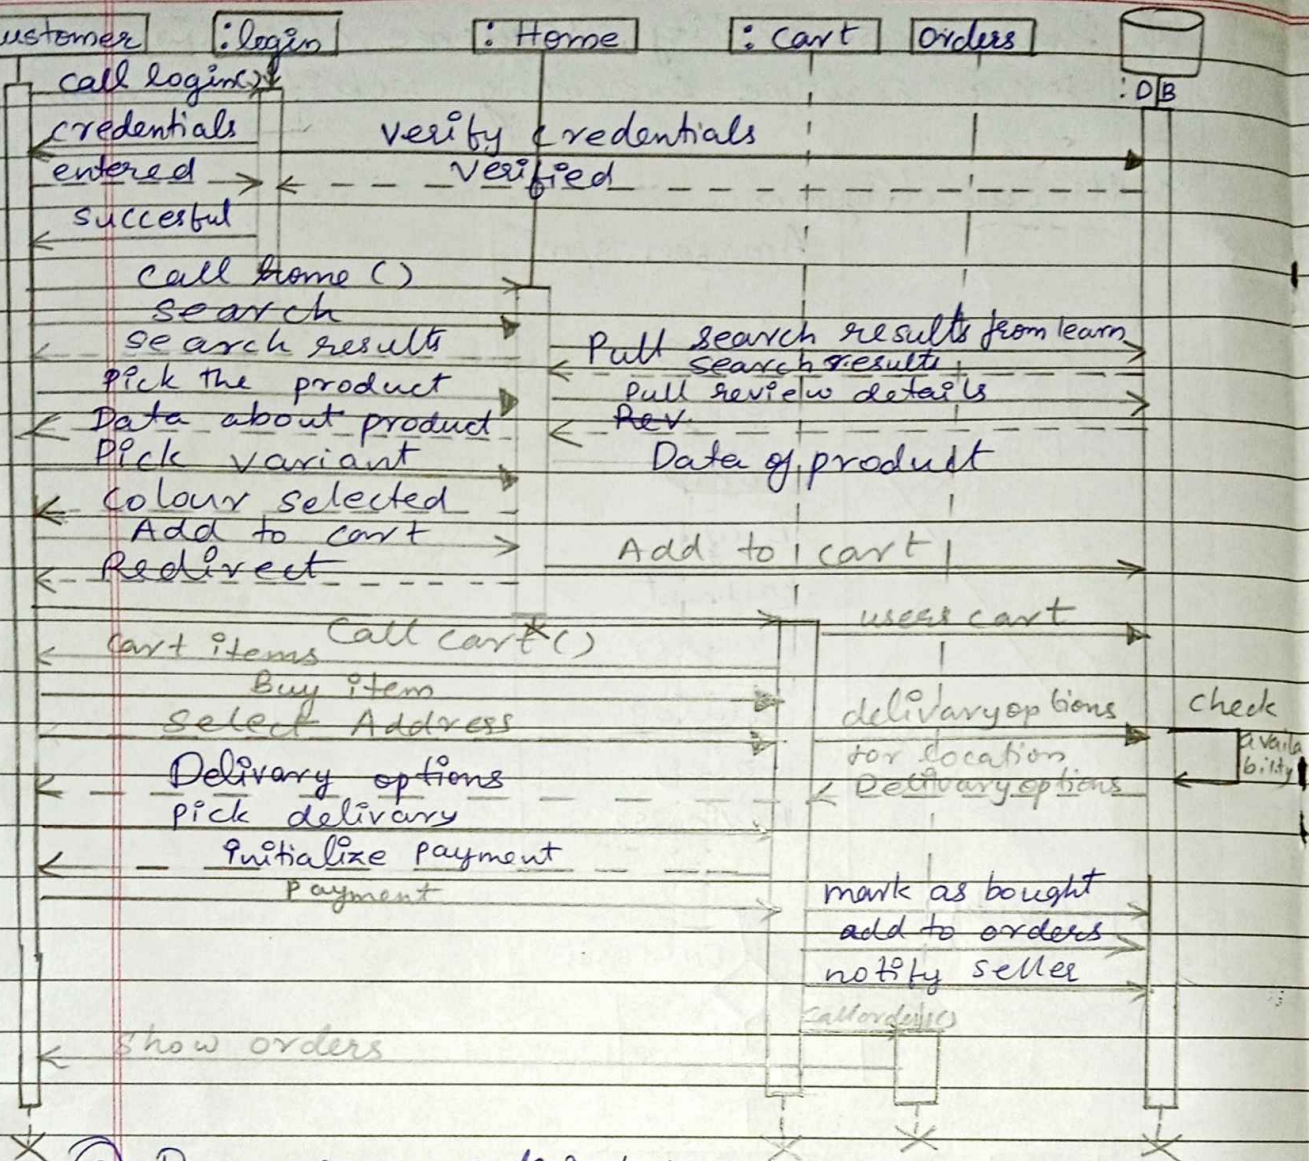 ustomer :login : Home : Cart Orders
: DB
call login()
credentials verify credentials
entered verified
succesful
call home ()
search
search results Pull search results from learn
search results
Pick the product Pull review details
Data about product Rev
Pick variant Data of product
Colour selected
Add to cart Add to cart
Redirect
Call cart () users cart
Cart items
Buy item
Select Address delivary options check
availa
for location bility
Delivary options Delivary options
Pick delivary
initialize payment
Payment mark as bought
add to orders
notify seller
call orders()
Show orders